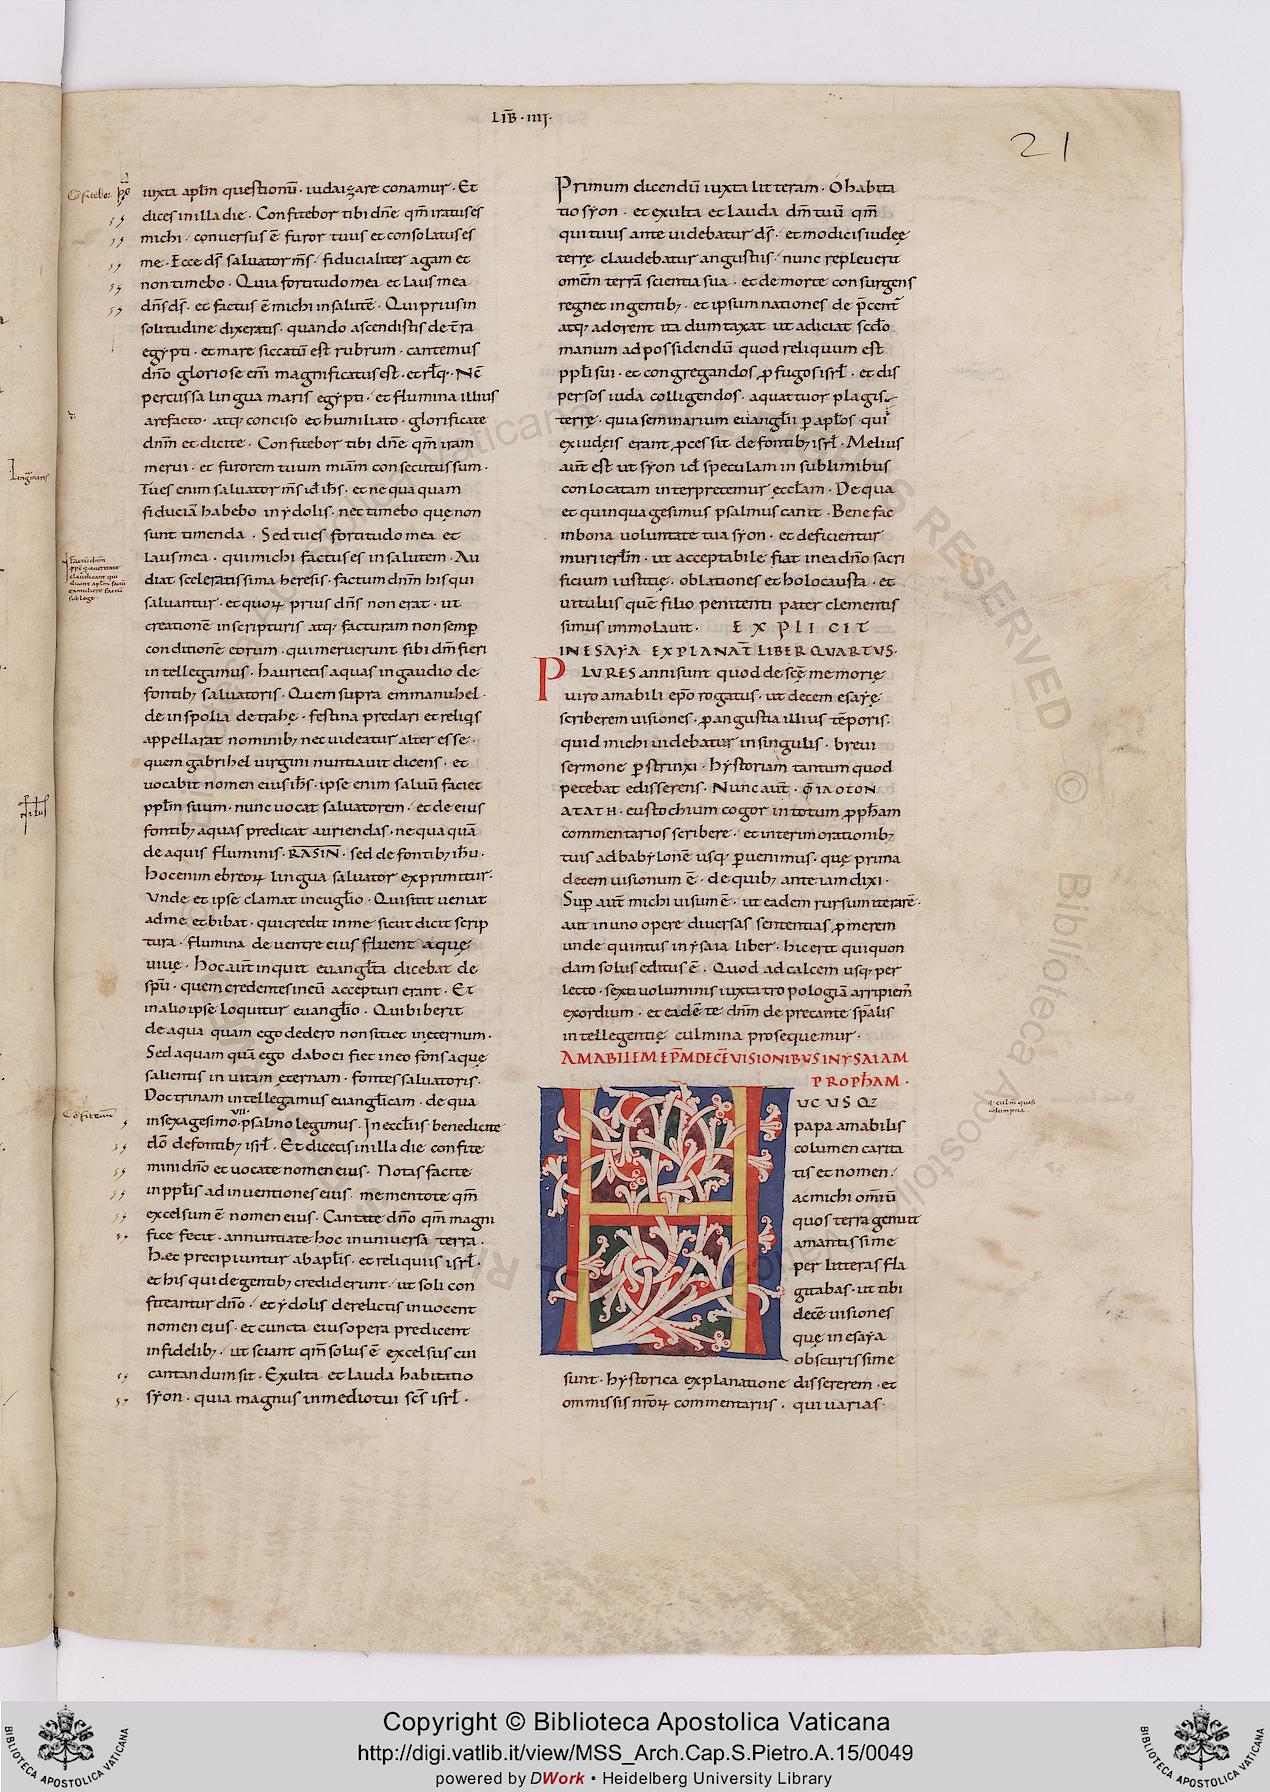 LIB̄ · IIIJ ·
21
iuxta apl̄m questionū · iudaizare conamur · Et
dices in illa die · Confitebor tibi dn̄e qm̄ iratus es
michi · conversus ē furor tuus et consolatus es
me · Ecce ds̄ salvator ms̄ / fiducialiter agam et
non timebo · Quia fortitudo mea et laus mea
dn̄s ds̄ · et factus ē michi in salutē · Qui prius in
solitudine dixeratis · quando ascendistis de t̄ra
egypti · et mare siccatū est rubrum · cantemus
dn̄o gloriose eni̅ magnificatus est · et rl̄q · Nc̄
percussa lingua maris egypti · et flumina illius
arefacto · atq; conciso et humiliato · glorificate
dnm̄ et dicite · Confitebor tibi dn̄e qm̄ iram
merui · et furorem tuum miām consecutus sum ·
Tu es enim salvator ms̄ id̄ ih̄s · et nequaquam
fiduciā habebo in ydolis · nec timebo quę non
sunt timenda · Sed tu es fortitudo mea et
laus mea · qui michi factus es in salutem · Au
diat sceleratissima heresis · factum dnm̄ his qui
salvantur · et quoꝝ prius dn̄s non erat · ut
creationē in scripturis atq; facturam non semp̄
conditionē eorum · qui meruerunt sibi dm̄ fieri
intellegamus · haurietis aquas in gaudio de
fontib; salvatoris · Quem supra emmanuhel ·
de in spolia detrahe · festina predari et reliq̄s
appellarat nominib; nec videatur alter esse ·
quem gabrihel virgini nuntiavit dicens · et
vocabit nomen eius ih̄s · ipse enim salvū faciet
ppl̄m suum · nunc vocat salvatorem / et de eius
fontib; aquas predicat auriendas · ne quaquā
de aquis fluminis · RASIN · sed de fontib; ih̄u ·
hoc enim ebreoꝝ lingua salvator exprimitur ·
Unde et ipse clamat in euḡlio · Qui sitit veniat
ad me et bibat · qui credit in me sicut dicit scrip
tura · flumina de ventre eius fluent aquę
vivę · hoc aūt inquit euangl̄ta dicebat de
spū · quem credentes in eū accepturi erant · Et
in alio ipse loquitur euangl̄io · Qui biberit
de aqua quam ego dedero non sitiet in ęternum ·
Sed aquam quā ego dabo ei fiet in eo fons aquę
salientis in vitam ęternam · fontes salvatoris ·
Doctrinam intellegamus euangl̄icam · de qua
in sexagesimo · VII · psalmo legimus · In eccl̄iis benedicite
dō de fontib; isrl̄ · Et dicetis in illa die confite
mini dn̄o et vocate nomen eius · Notas facite
in ppl̄is adinventiones eius · mementote qm̄
excelsum ē nomen eius · Cantate dn̄o qm̄ magni
fice fecit · annuntiate hoc in universa terra ·
Hęc precipiuntur ab apl̄is · et reliquiis isrl̄ ·
et his qui de gentib; crediderunt / ut soli con
fiteantur dn̄o / et ydolis derelictis invocent
nomen eius · et cuncta eius opera predicent
infidelib; / ut sciant qm̄ solus ē excelsus cui
cantandum sit · Exulta et lauda habitatio
syon · quia magnus in medio tui sc̄s isrl̄ ·
Primum dicendū iuxta litteram · O habita
tio syon · et exulta et lauda dm̄ tuū qm̄
qui tuus ante videbatur ds̄ / et modicis iudeę
terrę claudebatur angustiis / nunc repleverit
omēm terrā scientia sua · et de morte consurgens
regnet in gentib; · et ipsum nationes depcent̄
atq; adorent ita dumtaxat ut adiciat scd̄o
manum ad possidendū quod reliquum est
ppl̄i sui · et congregandos ꝓfugos isrl̄ · et dis
persos iuda colligendos · a quattuor plagis
terrę · quia seminarium euangl̄ii p apl̄os qui
ex iudęis erant ꝓcessit de fontib; isrl̄ · Melius
aūt est ut syon id̄ speculam in sublimibus
conlocatam interpretemur ęccl̄am · De qua
et quinquagesimus psalmus canit · Bene fac
in bona voluntate tua syon · et ędificentur
muri ierl̄m · ut acceptabile fiat in ea dn̄o sacri
ficium iustitię · oblationes et holocausta · et
vitulus quē filio penitenti pater clementis
simus immolavit · EXPLICIT
IN ESAYA EXPLANAT̄ LIBER QUARTUS ·
PLURES anni sunt quod de sc̄ę memorię
viro amabili epō rogatus · ut decem esayę
scriberem visiones · ꝓ angustia illius tēporis ·
quid michi videbatur in singulis · brevi
sermone pstrinxi · hystoriam tantum quod
petebat edisserens · Nunc aūt · ΦΙΛΟΤΟΝ
ΑΤΑΤΗ · eustochium cogor in totum ꝓph̄am
commentarios scribere / et interim orationib;
tuis ad babylonē usq; pvenimus · quę prima
decem visionum ē · de quib; ante iam dixi ·
Sup̄ aūt michi visum ē / ut eadem rursum iterarē ·
aut in uno opere diversas sententias ꝓmerem
unde quintus in ysaia liber · hic erit qui quon
dam solus editus ē · Quod ad calcem usq; per
lecto · sexti voluminis iuxta tropologiā arripiem̄
exordium · et eadē te dnm̄ deprecante spālis
intellegentię culmina prosequemur ·
AMABILEM EPM̄ DECĒ VISIONIBUS IN YSAIAM
PROPH̄AM ·
HUCUSQ;
papa amabilis
columen carita
tis et nomen /
ac michi omīū
quos terra genuit
amantissime
per litteras fla
gitabas · ut tibi
decē visiones
quę in esaya
obscurissime
sunt · hystorica explanatione dissererem · et
ommissis nr̄oꝝ commentariis · qui varias ·